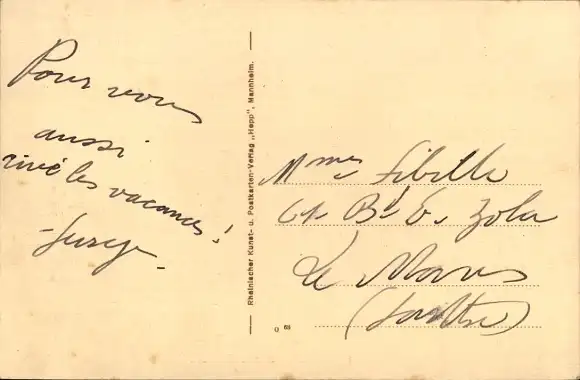 Pour vous
aussi
vive les vacances!
Rheinischer Kunst- u. Postkarten-Verlag „Hepp", Mannheim.
Mmes Sibille
Bd E. Zola
Le Mans
(Sarthe)